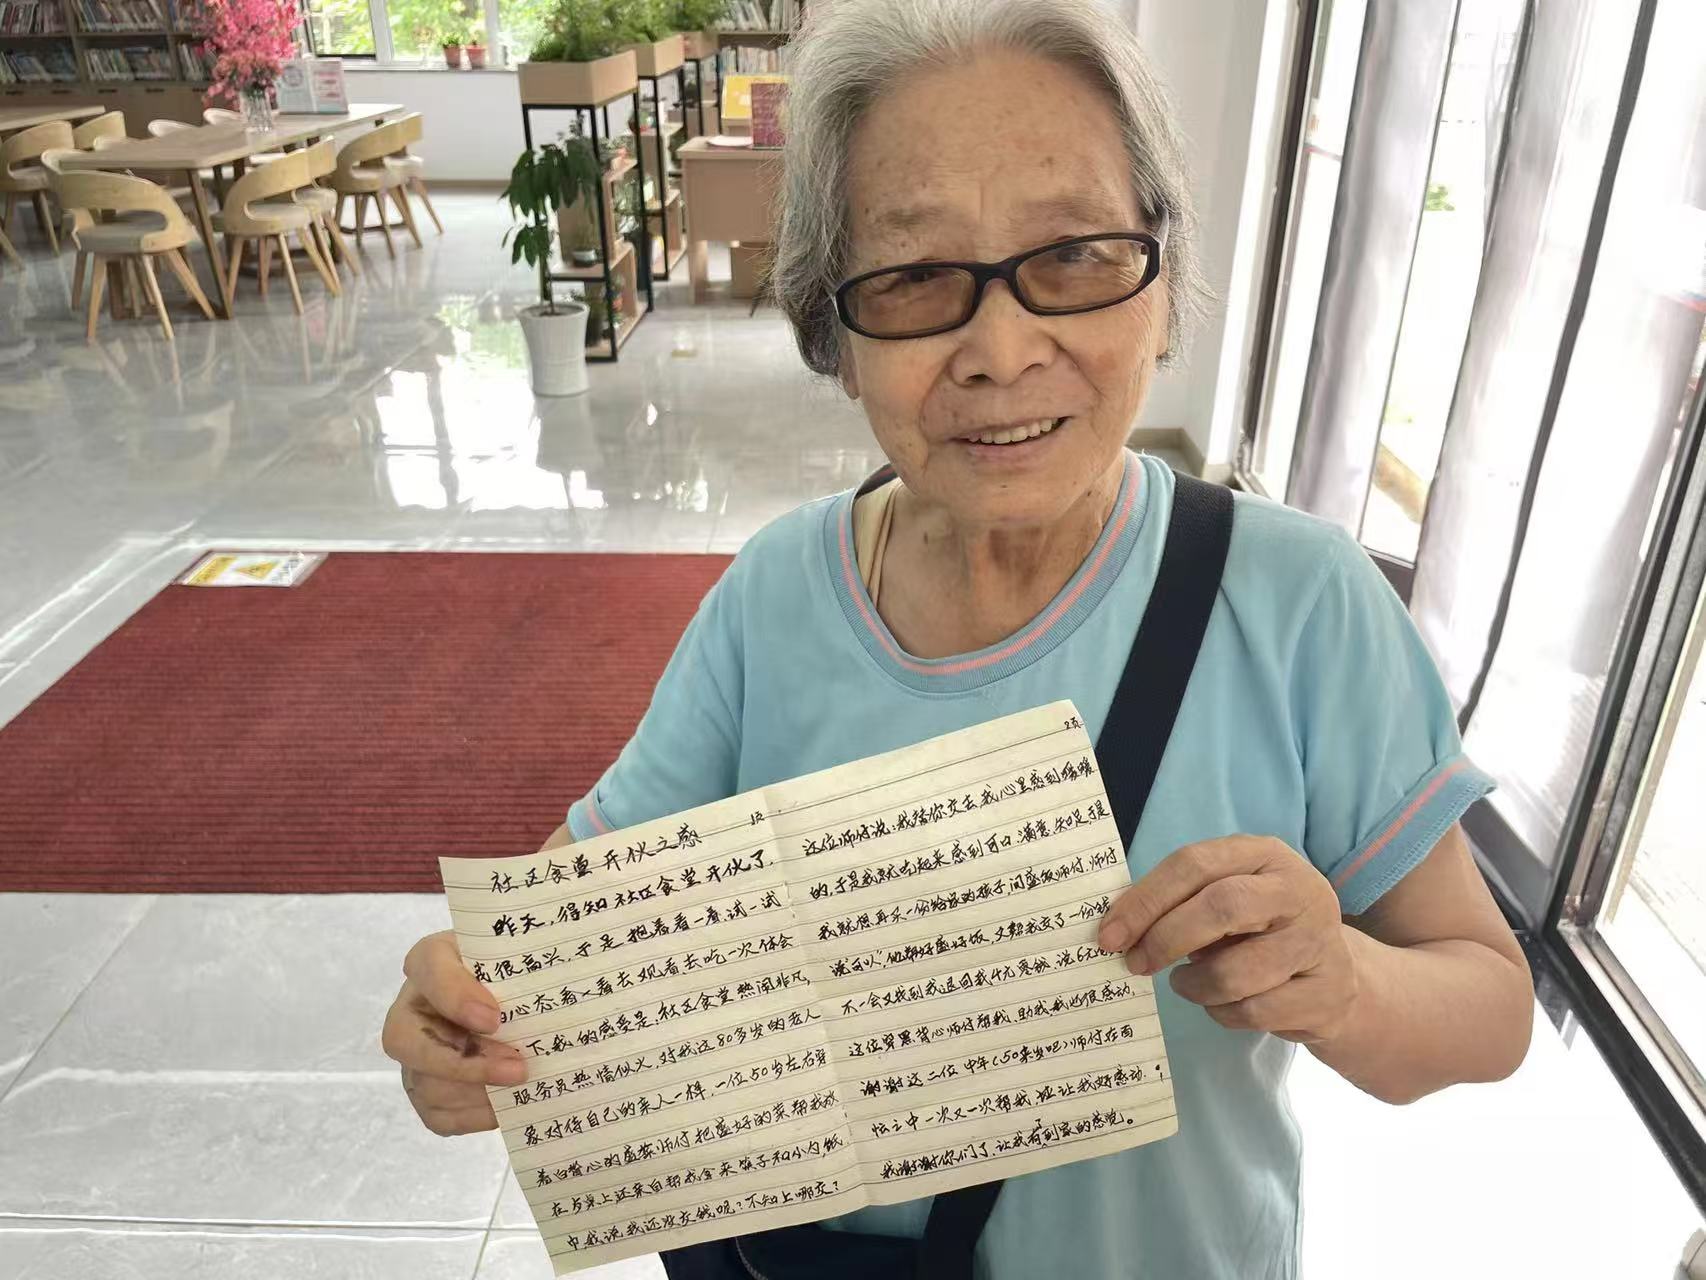 1页.
社区食堂开伙之感
昨天,得知社区食堂开伙了.
我很高兴,于是抱着看一看,试一试
心态.看一看去观看去吃一次体会
下。我的感受是:社区食堂热闹非凡,
服务员热情似火,对我这80多岁的老人
象对待自己的亲人一样,一位50岁左右穿
着白背心的盛菜师付把盛好的菜帮我放
在歺桌上还亲自帮我拿来筷子和小勺,纸
巾,我说我还没交钱呢?不知上哪交?
2页.
这位师付说:我替你交去,我心里感到暖暖
的,于是我就吃起来感到可口.满意.知足,于是
我就想再买一份给家的孩子,问盛饭师付.师付
说"可以",他帮好盛好饭,又帮我交了一份钱
不一会又找到我退回我4元零钱.说6元
这位穿黑背心师付帮我.助我,我也很感动,
谢谢这二位中年(50来岁吧)师付在百
忙之中一次又一次帮我,这让我好感动.!
我谢谢你们了,让我有到家的感觉。